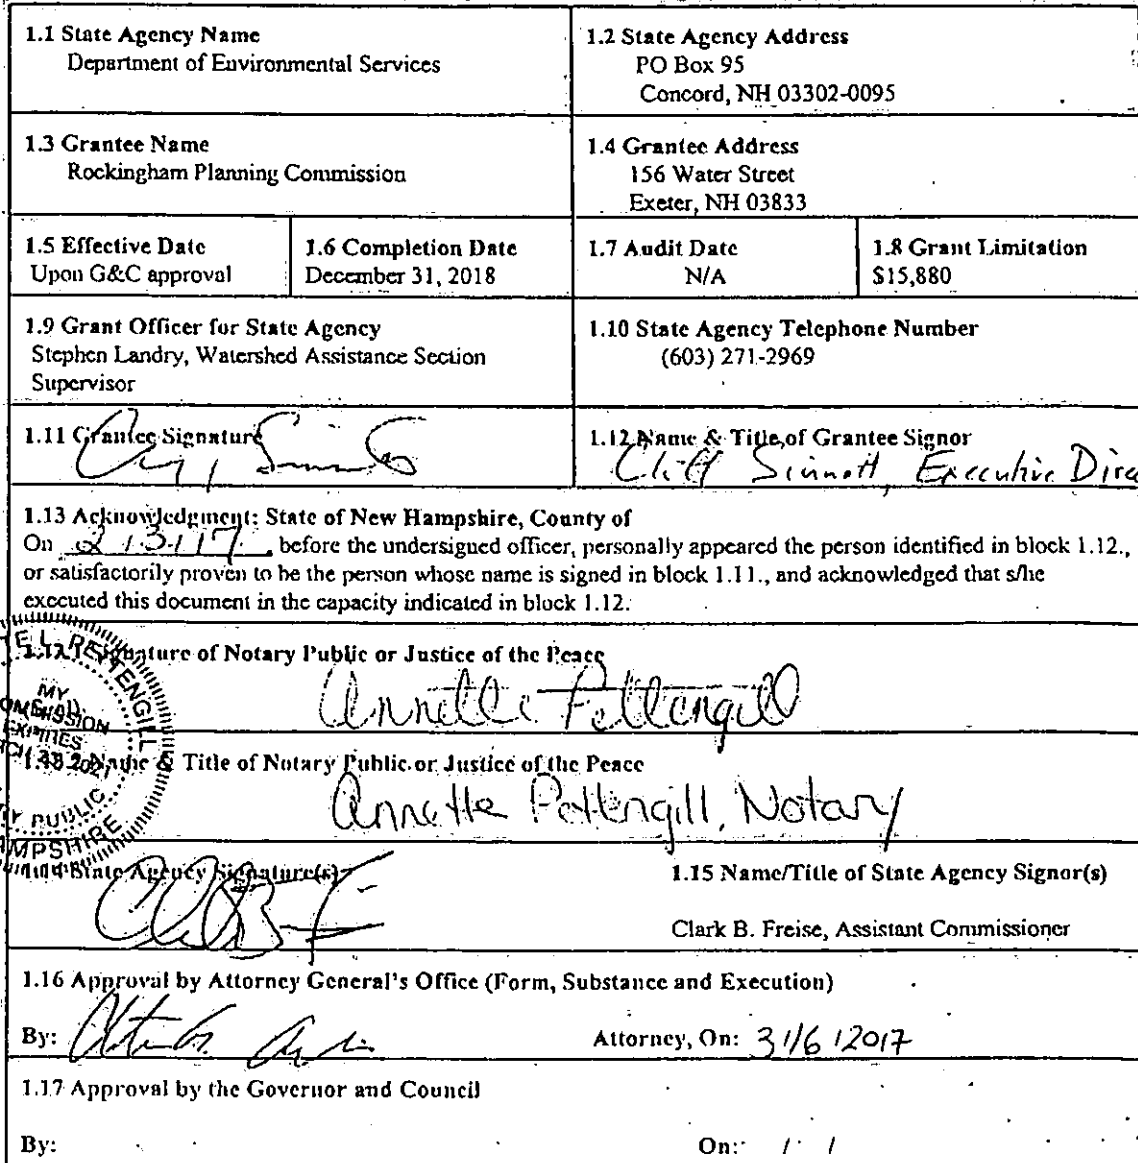 1.1 State Agency Name
Department of Environmental Services
1.2 State Agency Address
PO Box 95
Concord, NH 03302-0095
1.3 Grantee Name
Rockingham Planning Commission
1.4 Grantee Address
156 Water Street
Exeter, NH 03833
1.5 Effective Date
Upon G&C approval
1.6 Completion Date
December 31, 2018
1.7 Audit Date
N/A
1.8 Grant Limitation
$15,880
1.9 Grant Officer for State Agency
Stephen Landry, Watershed Assistance Section
Supervisor
1.10 State Agency Telephone Number
(603) 271-2969
1.11 Grantee Signature
1.12 Name & Title of Grantee Signor
Cliff Sinnott, Executive Direc
1.13 Acknowledgment: State of New Hampshire, County of
On 2/3/17, before the undersigned officer, personally appeared the person identified in block 1.12.,
or satisfactorily proven to be the person whose name is signed in block 1.11., and acknowledged that s/he
executed this document in the capacity indicated in block 1.12.
Signature of Notary Public or Justice of the Peace
Annette Pettengill
E L. PETTENGILL
MY
COMMISSION
EXPIRES
2021
PUBLIC
Name & Title of Notary Public or Justice of the Peace
Annette Pettengill, Notary
State Agency Signature(s)
1.15 Name/Title of State Agency Signor(s)
Clark B. Freise, Assistant Commissioner
1.16 Approval by Attorney General's Office (Form, Substance and Execution)
By:
Attorney, On: 3/16/2017
1.17 Approval by the Governor and Council
By:
On: / /